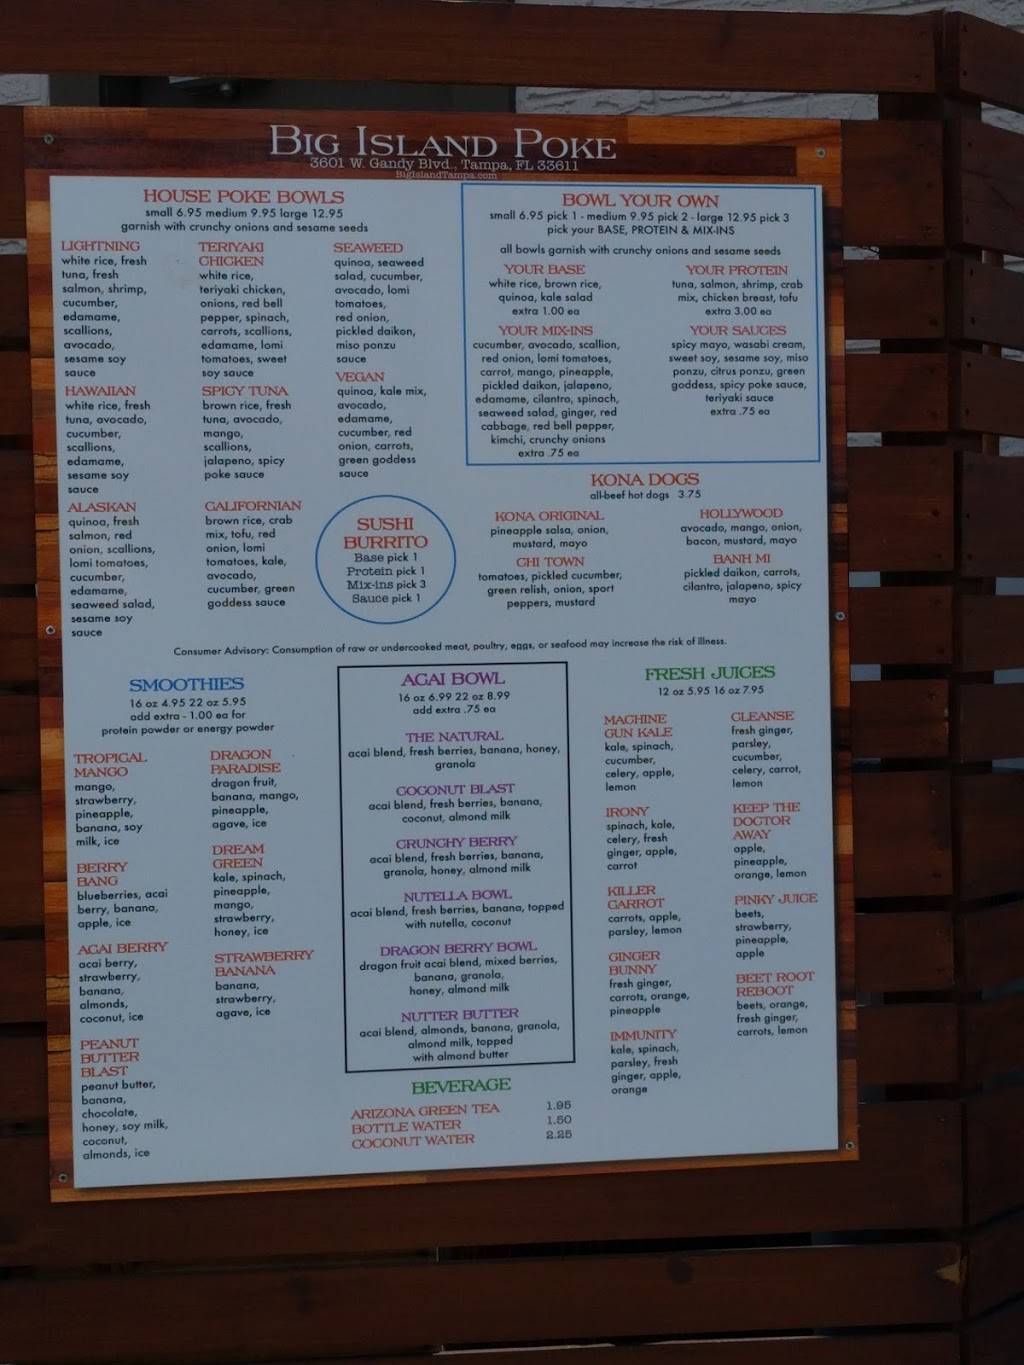 BIG ISLAND POKE
3601 W. Gandy Blvd., Tampa, FL 33611
BigIslandTampa.com
HOUSE POKE BOWLS
small 6.95 medium 9.95 large 12.95
garnish with crunchy onions and sesame seeds
LIGHTNING
white rice, fresh
tuna, fresh
salmon, shrimp,
cucumber,
edamame,
scallions,
avocado,
sesame soy
sauce
HAWAIIAN
white rice, fresh
tuna, avocado,
cucumber,
scallions,
edamame,
sesame soy
sauce
ALASKAN
quinoa, fresh
salmon, red
onion, scallions,
lomi tomatoes,
cucumber,
edamame,
seaweed salad,
sesame soy
sauce
TERIYAKI
CHICKEN
white rice,
teriyaki chicken,
onions, red bell
pepper, spinach,
carrots, scallions,
edamame, lomi
tomatoes, sweet
soy sauce
SPICY TUNA
brown rice, fresh
tuna, avocado,
mango,
scallions,
jalapeno, spicy
poke sauce
CALIFORNIAN
brown rice, crab
mix, tofu, red
onion, lomi
tomatoes, kale,
avocado,
cucumber, green
goddess sauce
SEAWEED
quinoa, seaweed
salad, cucumber,
avocado, lomi
tomatoes,
red onion,
pickled daikon,
miso ponzu
sauce
VEGAN
quinoa, kale mix,
avocado,
edamame,
cucumber, red
onion, carrots,
green goddess
sauce
SUSHI
BURRITO
Base pick 1
Protein pick 1
Mix-ins pick 3
Sauce pick 1
BOWL YOUR OWN
small 6.95 pick 1 - medium 9.95 pick 2 - large 12.95 pick 3
pick your BASE, PROTEIN & MIX-INS
all bowls garnish with crunchy onions and sesame seeds
YOUR BASE
white rice, brown rice,
quinoa, kale salad
extra 1.00 ea
YOUR MIX-INS
cucumber, avocado, scallion,
red onion, lomi tomatoes,
carrot, mango, pineapple,
pickled daikon, jalapeno,
edamame, cilantro, spinach,
seaweed salad, ginger, red
cabbage, red bell pepper,
kimchi, crunchy onions
extra .75 ea
YOUR PROTEIN
tuna, salmon, shrimp, crab
mix, chicken breast, tofu
extra 3.00 ea
YOUR SAUCES
spicy mayo, wasabi cream,
sweet soy, sesame soy, miso
ponzu, citrus ponzu, green
goddess, spicy poke sauce,
teriyaki sauce
extra .75 ea
KONA DOGS
all-beef hot dogs 3.75
KONA ORIGINAL
pineapple salsa, onion,
mustard, mayo
CHI TOWN
tomatoes, pickled cucumber,
green relish, onion, sport
peppers, mustard
HOLLYWOOD
avocado, mango, onion,
bacon, mustard, mayo
BANH MI
pickled daikon, carrots,
cilantro, jalapeno, spicy
mayo
Consumer Advisory: Consumption of raw or undercooked meat, poultry, eggs, or seafood may increase the risk of illness.
SMOOTHIES
16 oz 4.95 22 oz 5.95
add extra - 1.00 ea for
protein powder or energy powder
TROPICAL
MANGO
mango,
strawberry,
pineapple,
banana, soy
milk, ice
BERRY
BANG
blueberries, acai
berry, banana,
apple, ice
ACAI BERRY
acai berry,
strawberry,
banana,
almonds,
coconut, ice
PEANUT
BUTTER
BLAST
peanut butter,
banana,
chocolate,
honey, soy milk,
coconut,
almonds, ice
DRAGON
PARADISE
dragon fruit,
banana, mango,
pineapple,
agave, ice
DREAM
GREEN
kale, spinach,
pineapple,
mango,
strawberry,
honey, ice
STRAWBERRY
BANANA
banana,
strawberry,
agave, ice
ACAI BOWL
16 oz 6.99 22 oz 8.99
add extra .75 ea
THE NATURAL
acai blend, fresh berries, banana, honey,
granola
COCONUT BLAST
acai blend, fresh berries, banana,
coconut, almond milk
CRUNCHY BERRY
acai blend, fresh berries, banana,
granola, honey, almond milk
NUTELLA BOWL
acai blend, fresh berries, banana, topped
with nutella, coconut
DRAGON BERRY BOWL
dragon fruit acai blend, mixed berries,
banana, granola,
honey, almond milk
NUTTER BUTTER
acai blend, almonds, banana, granola,
almond milk, topped
with almond butter
BEVERAGE
ARIZONA GREEN TEA 1.95
BOTTLE WATER 1.50
COCONUT WATER 2.25
FRESH JUICES
12 oz 5.95 16 oz 7.95
MACHINE
GUN KALE
kale, spinach,
cucumber,
celery, apple,
lemon
IRONY
spinach, kale,
celery, fresh
ginger, apple,
carrot
KILLER
CARROT
carrots, apple,
parsley, lemon
GINGER
BUNNY
fresh ginger,
carrots, orange,
pineapple
IMMUNITY
kale, spinach,
parsley, fresh
ginger, apple,
orange
CLEANSE
fresh ginger,
parsley,
cucumber,
celery, carrot,
lemon
KEEP THE
DOCTOR
AWAY
apple,
pineapple,
orange, lemon
PINKY JUICE
beets,
strawberry,
pineapple,
apple
BEET ROOT
REBOOT
beets, orange,
fresh ginger,
carrots, lemon